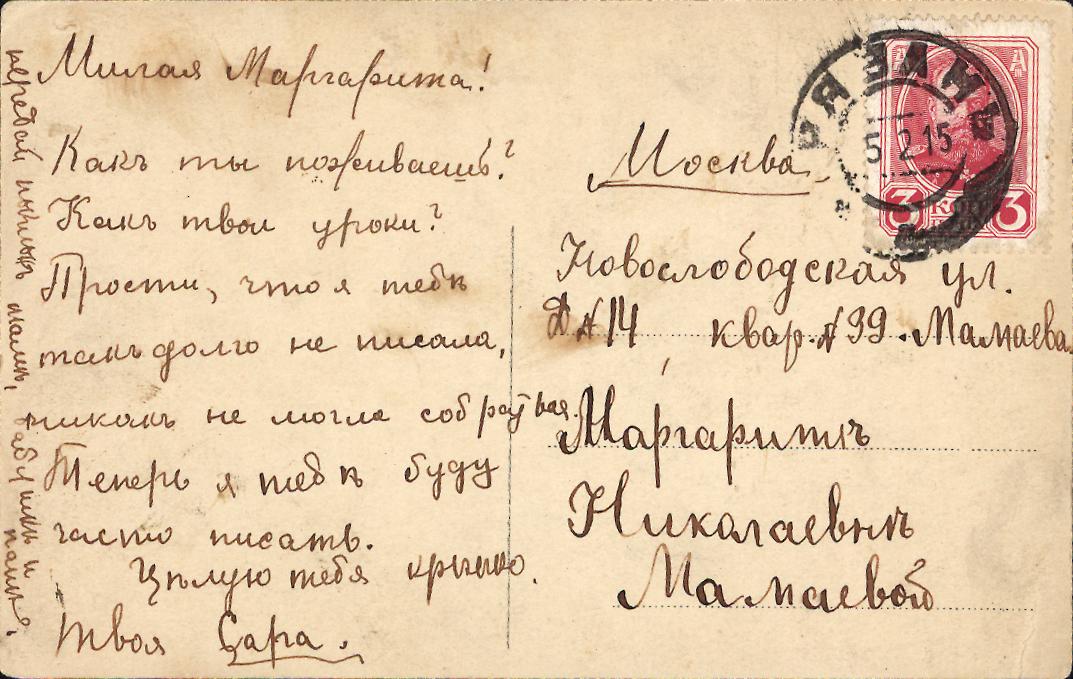 Милая Маргарита!
Какъ ты поживаешь?
Какъ твои уроки?
Прости, что я тебѣ
такъ долго не писала,
никакъ не могла
Теперь я тебѣ буду
часто писать.
Цѣлую тебя крѣпко.
Твоя Сара.
передай мамѣ, и папѣ.
Москва.
Новослободская ул.
Д № 14 квар. № 39. Мамаева.
Маргаритѣ
Николаевнѣ
Мамаевой
5 2 15
3 3